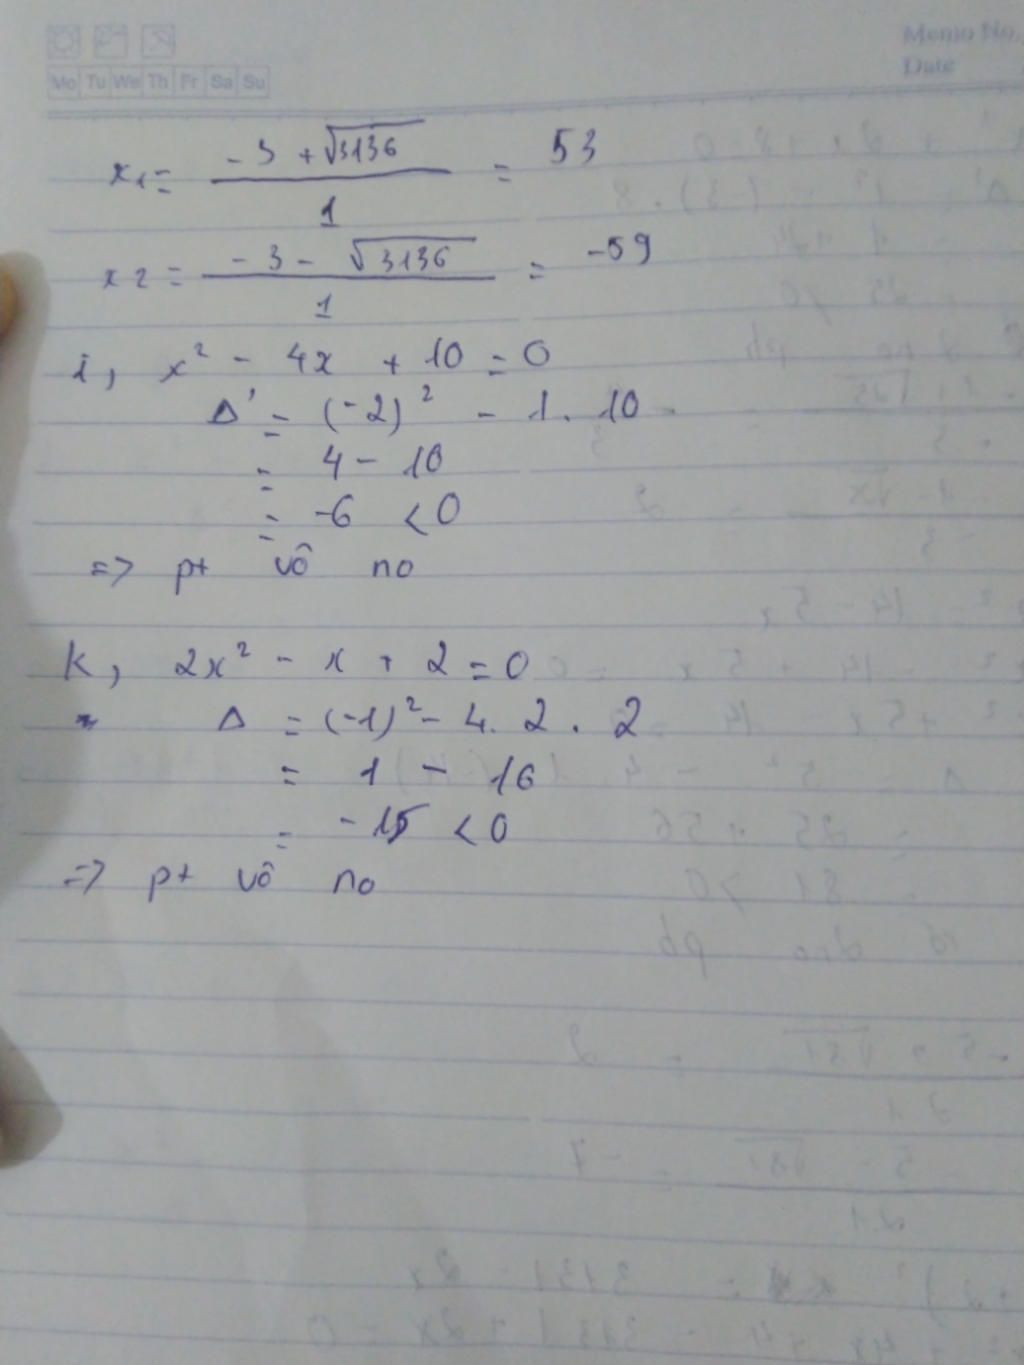 Memo No.
Date
Mo Tu We Th Fr Sa Su
x₁ = (-3 + √3136) / 1 = 53
x2 = (-3 - √3136) / 1 = -59
i, x² - 4x + 10 = 0
Δ' = (-2)² - 1. 10
= 4 - 10
= -6 < 0
=> pt vô no
k, 2x² - x + 2 = 0
Δ = (-1)² - 4. 2. 2
= 1 - 16
= -15 < 0
=> pt vô no